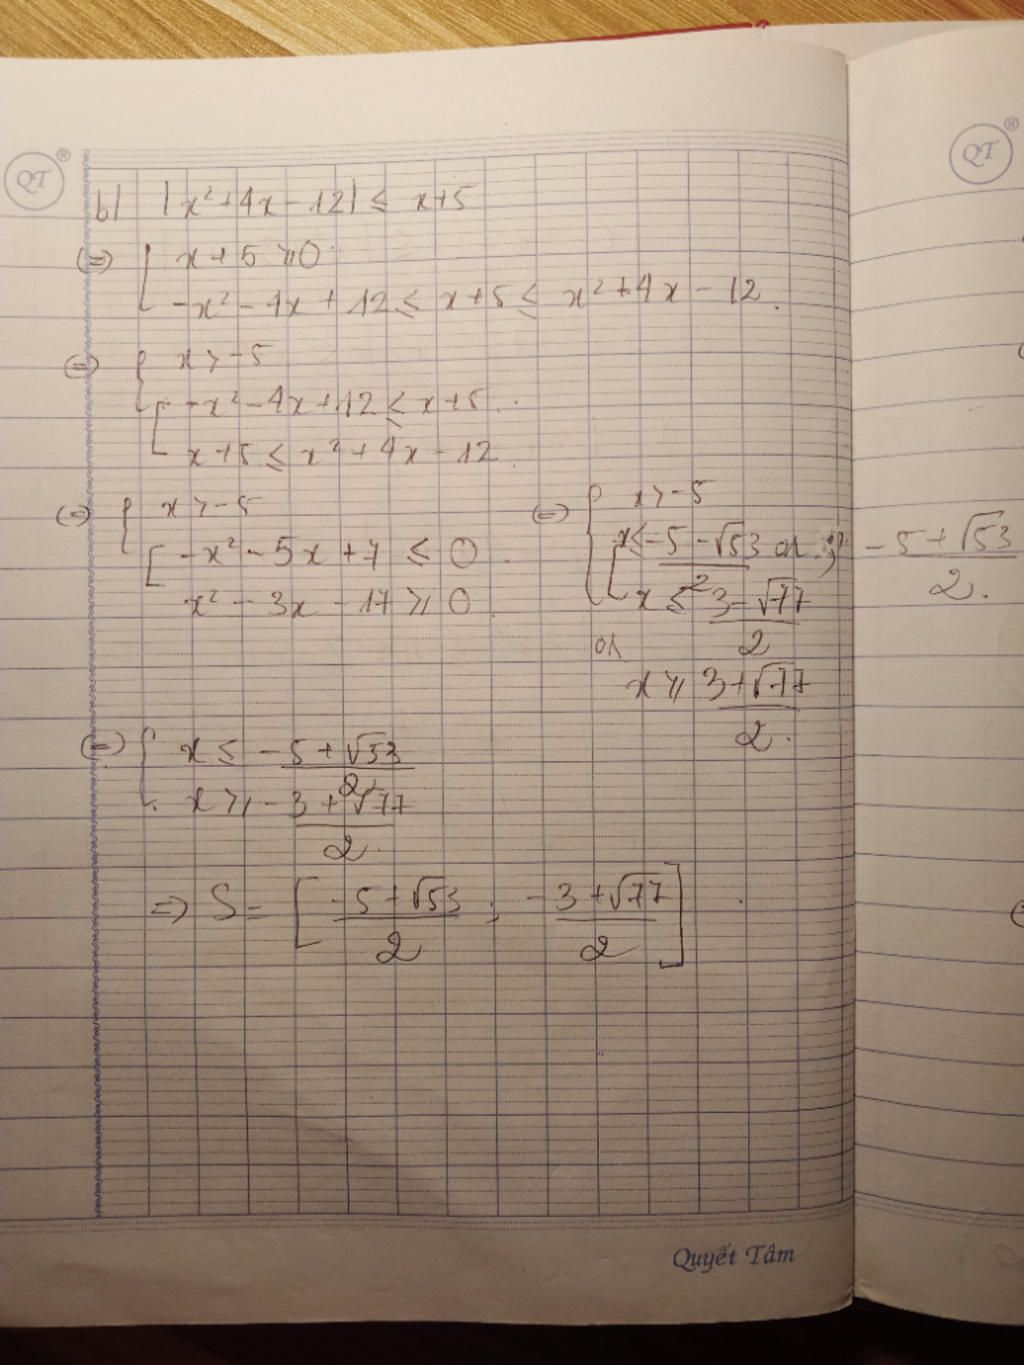 QT ®
QT ®
b) |x² + 4x - 12| ≤ x+5
(=) { x + 5 ≥ 0
-x² - 4x + 12 ≤ x+5 ≤ x² + 4x - 12.
(=) { x > -5
[ -x² - 4x + 12 ≤ x+5.
x+5 ≤ x² + 4x - 12
(=) { x > -5
[ -x² - 5x + 7 ≤ 0
x² - 3x - 17 ≥ 0
(=) { x > -5
[ x ≤ -5 - √53 / 2 or -5 + √53 / 2.
x ≤ 3 - √77 / 2
or
x ≥ 3 + √77 / 2.
(=) { x ≤ -5 + √53 / 2
x ≥ -3 + √77 / 2
=> S = [ -5 + √53 / 2 ; -3 + √77 / 2 ]
Quyết Tâm